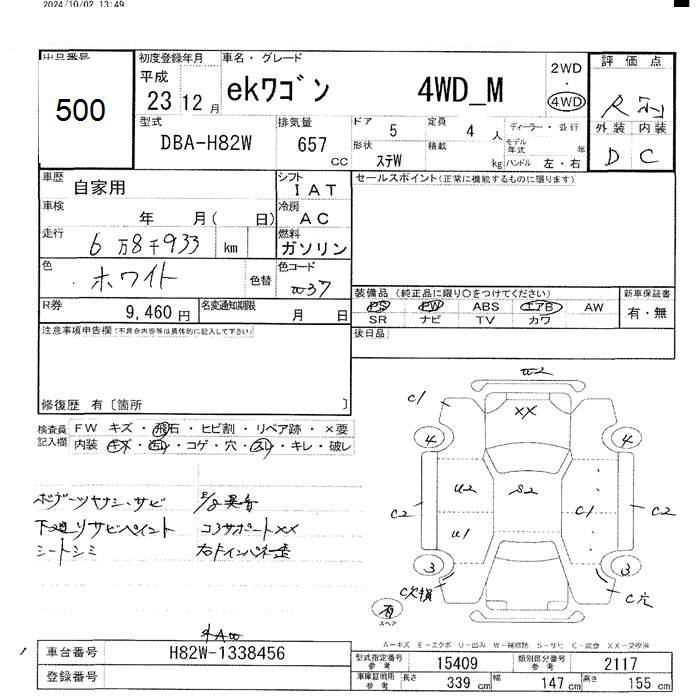 2024/10/02 13:49
出品番号
500
初度登録年月
平成
23 12 月
車名・グレード
ekワゴン 4WD_M
2WD
・
4WD
評価点
R
外装 内装
D C
型式
DBA-H82W
排気量
657
CC
ドア
5
定員
4 人
形状
ステW
積載
kg
ディーラー・並行
モデル年式 年
ハンドル 左・右
車歴
自家用
シフト
IAT
車検
年 月( 日)
冷房
AC
走行
6万8千933 km
燃料
ガソリン
色
ホワイト
色替
色コード
w37
R券
9,460 円
名変通知期限
月 日
セールスポイント(正常に機能するものに限ります)
装備品 (純正品に限り○をつけてください)
PS PW ABS エアB AW
SR ナビ TV カワ
新車保証書
有・無
後日品
注意事項申告欄(不具合内容等は具体的に記入して下さい)
修復歴 有〔箇所 〕
検査員記入欄
FW キズ・飛石・ヒビ割・リペア跡・×要
内装 キズ・汚れ・コゲ・穴・スレ・キレ・破レ
ボデーツヤナシ・サビ
下廻りサビペイント
シートシミ
E/g異音
コアサポートXX
右Fインパネ歪
w2
C1
XX
4
4
C2
U2
S2
C1
C2
U1
3
3
C欠損
C穴
有
スペア
A-キズ E-エクボ U-凹み W-補修跡 S-サビ C-腐食 XX-交換済
車台番号
H82W-1338456
登録番号
型式指定番号
参考
15409
類別区分番号
参考
2117
車庫証明用
参考
長さ
339 cm
幅
147 cm
高さ
155 cm